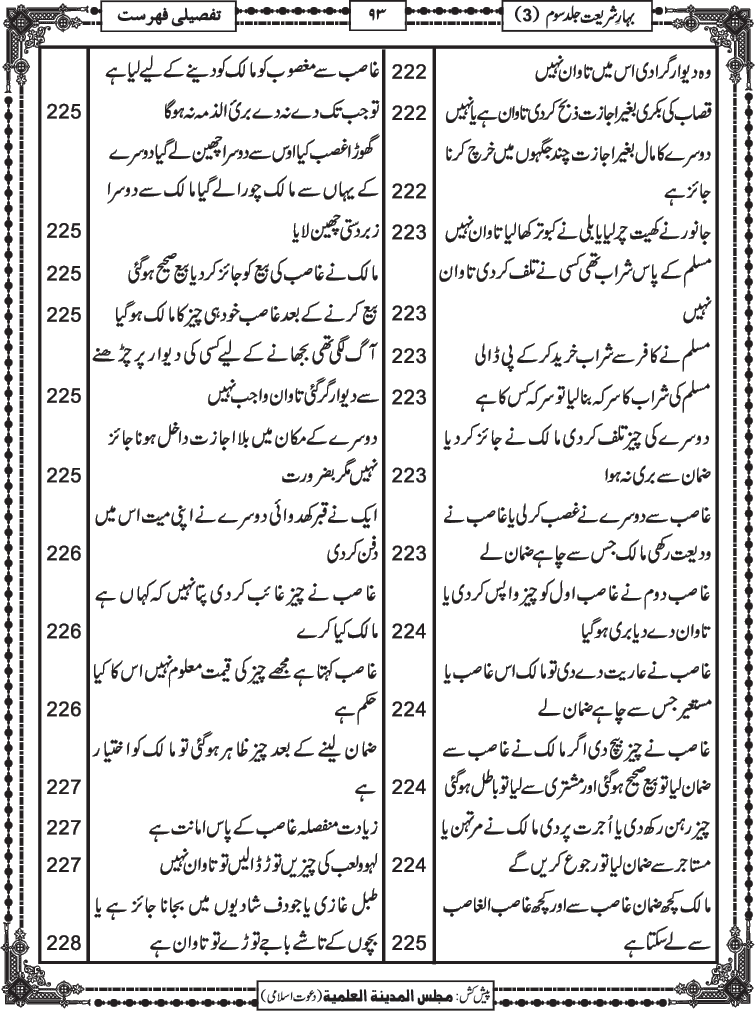 بہار شریعت جلد سوم (3)
۹۳
تفصیلی فہرست
وہ دیوار گرادی اس میں تاوان نہیں 222
قصاب کی بکری بغیر اجازت ذبح کردی تاوان ہے یا نہیں 222
دوسرے کا مال بغیر اجازت چند جگہوں میں خرچ کرنا
جائز ہے 222
جانور نے کھیت چر لیا یا بلی نے کبوتر کھا لیا تاوان نہیں 223
مسلم کے پاس شراب تھی کسی نے تلف کردی تاوان
نہیں 223
مسلم نے کافر سے شراب خرید کر کے پی ڈالی 223
مسلم کی شراب کا سرکہ بنالیا تو سرکہ کس کا ہے 223
دوسرے کی چیز تلف کردی مالک نے جائز کردیا
ضمان سے بری نہ ہوا 223
غاصب سے دوسرے نے غصب کرلی یا غاصب نے
ودیعت رکھی مالک جس سے چاہے ضمان لے 223
غاصب دوم نے غاصب اول کو چیز واپس کردی یا
تاوان دے دیا بری ہوگیا 224
غاصب نے عاریت دے دی تو مالک اس غاصب یا
مستعیر جس سے چاہے ضمان لے 224
غاصب نے چیز بیچ دی اگر مالک نے غاصب سے
ضمان لیا تو بیع صحیح ہوگئی اور مشتری سے لیا تو باطل ہوگئی 224
چیز رہن رکھ دی یا اُجرت پر دی مالک نے مرتہن یا
مستاجر سے ضمان لیا تو رجوع کریں گے 224
مالک کچھ ضمان غاصب سے اور کچھ غاصب الغاصب
سے لے سکتا ہے 225
غاصب سے مغصوب کو مالک کو دینے کے لیے لیا ہے
تو جب تک دے نہ دے بری الذمہ نہ ہوگا 225
گھوڑا غصب کیا اوس سے دوسرا چھین لے گیا دوسرے
کے یہاں سے مالک چورا لے گیا مالک سے دوسرا
زبردستی چھین لایا 225
مالک نے غاصب کی بیع کو جائز کردیا بیع صحیح ہوگئی 225
بیع کرنے کے بعد غاصب خود ہی چیز کا مالک ہوگیا 225
آگ لگی تھی بجھانے کے لیے کسی کی دیوار پر چڑھنے
سے دیوار گر گئی تاوان واجب نہیں 225
دوسرے کے مکان میں بلا اجازت داخل ہونا جائز
نہیں مگر بضرورت 225
ایک نے قبر کھدوائی دوسرے نے اپنی میت اس میں
دفن کردی 226
غاصب نے چیز غائب کردی پتا نہیں کہ کہاں ہے
مالک کیا کرے 226
غاصب کہتا ہے مجھے چیز کی قیمت معلوم نہیں اس کا کیا
حکم ہے 226
ضمان لینے کے بعد چیز ظاہر ہوگئی تو مالک کو اختیار
ہے 227
زیادت منفصلہ غاصب کے پاس امانت ہے 227
لہو و لعب کی چیزیں توڑ ڈالیں تو تاوان نہیں 227
طبل غازی یا جو دف شادیوں میں بجانا جائز ہے یا
بچوں کے تاشے باجے توڑے تو تاوان ہے 228
پیش کش: مجلس المدینۃ العلمیۃ (دعوت اسلامی)